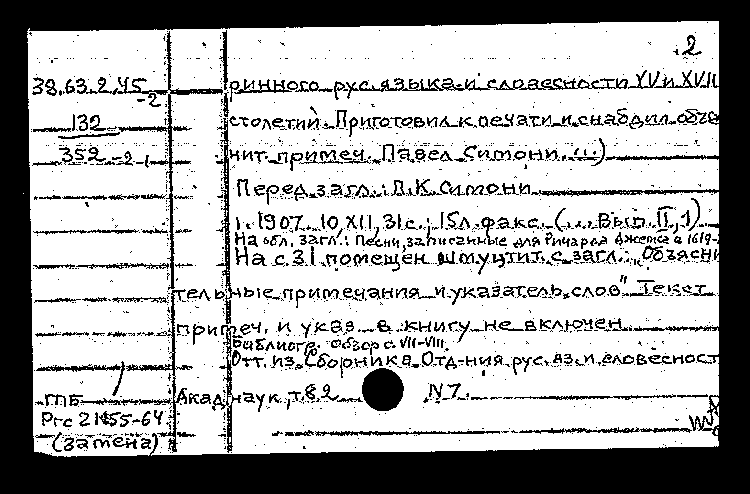 2
38.63.2.45 -2 ринного рус. языка и словесности XVI и XVII
132 столетий. Приготовил к печати и снабдил объя
352 -2 нит. примеч. Павел Симони. ...)
Перед загл.: П.К. Симони
1. 1907. 10, XII, 31 с.; 15 л. факс. (... Вып. II, 1)
На обл. загл.: Песни, записанные для Ричарда Джемса в 1619-
На с. 31 помещен шмуцтит. с загл.: "Объясни
тельные примечания и указатель слов" Текст
примеч. и указ. в книгу не включен
Библиогр. обзор с. VII-VIII.
Отт. из "Сборника Отд-ния рус. яз. и словесност
ГПБ Акад. наук, т. 82 N 7.
Ргс 21455-64
(замена)